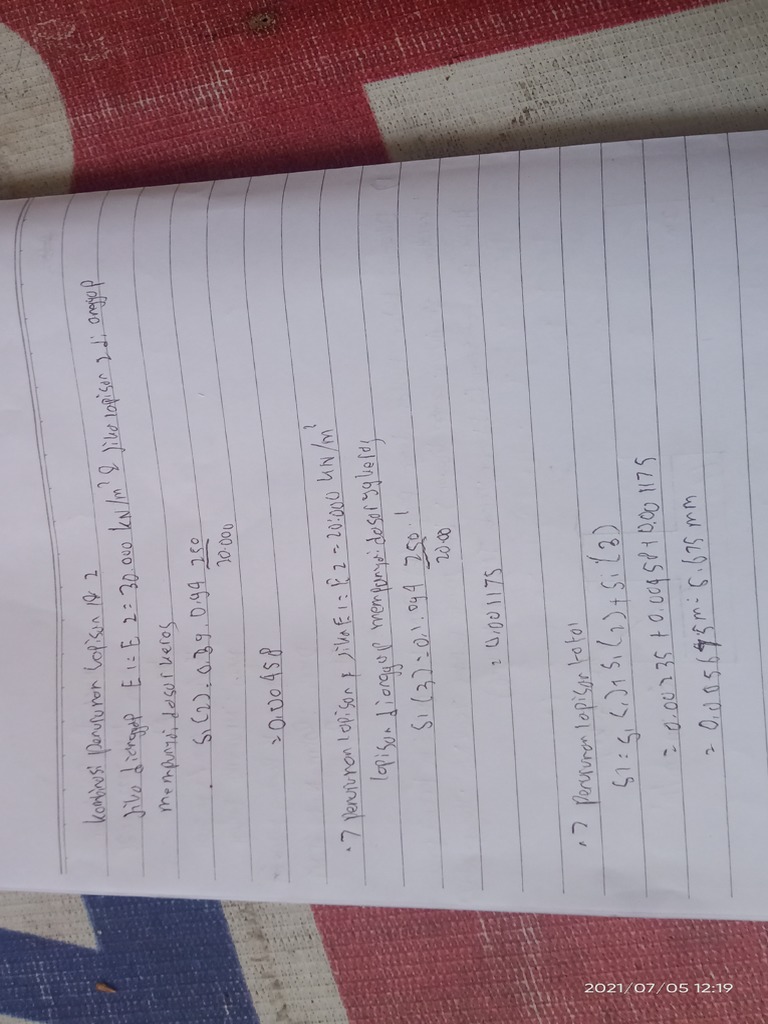 kombinasi penurunan lapisan 1 & 2
Jika dianggap E1 = E2 = 30.000 kN/m² & jika lapisan 2 di anggap
mempunyai dasar keras
Si(2) = 0.39. 0.94 250
30.000
= 0.00458
Penurunan lapisan jika E1 = E2 = 20.000 kN/m²
lapisan dianggap mempunyai dasar yg keras,
Si(3) = 0.1. 0.94 250 . 1
20.00
= 0.001175
Penurunan lapisan total
Si = Si(1) + Si(2) + Si(3)
= 0.00235 + 0.00458 + 0.001175
= 5.675 mm
2021/07/05 12:19